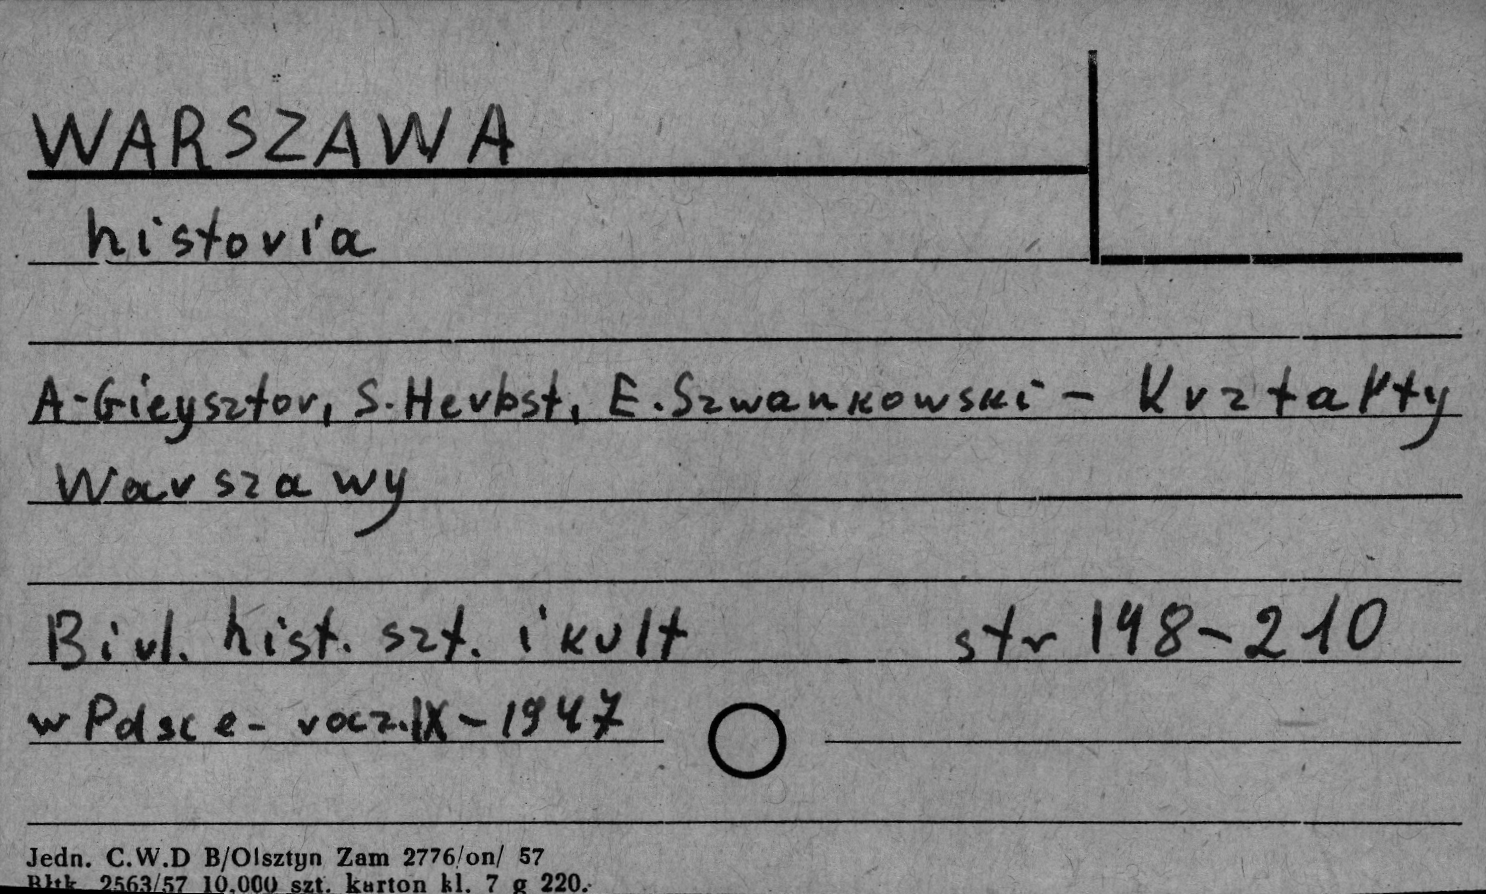 WARSZAWA
historia
A. Gieysztor, S. Herbst, E. Szwankowski - Kształty
Warszawy
Biul. hist. szt. i kult str 148-210
w Polsce - rocz. IX - 1947
Jedn. C.W.D B/Olsztyn Zam 2776/on/ 57
Bltk. 2563/57 10.000 szt. karton kl. 7 g 220.